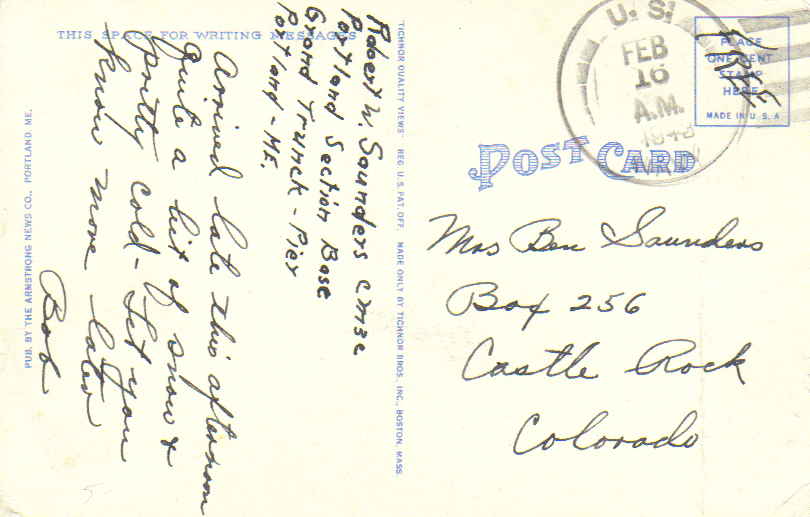 THIS SPACE FOR WRITING MESSAGES
Robert W. Saunders CM3c
Portland Section Base
Grand Trunck - Pier
Portland - ME.
Arrived late this afternoon
quite a bit of snow &
pretty cold - Let you
know more later
Bob
PUB. BY THE ARMSTRONG NEWS CO., PORTLAND, ME.
"TICHNOR QUALITY VIEWS" REG. U. S. PAT. OFF. MADE ONLY BY TICHNOR BROS., INC., BOSTON, MASS.
POST CARD
U. S.
FEB
16
A.M.
PLACE
ONE CENT
STAMP
HERE
MADE IN U. S. A
FREE
Mrs Ben Saunders
Box 256
Castle Rock
Colorado